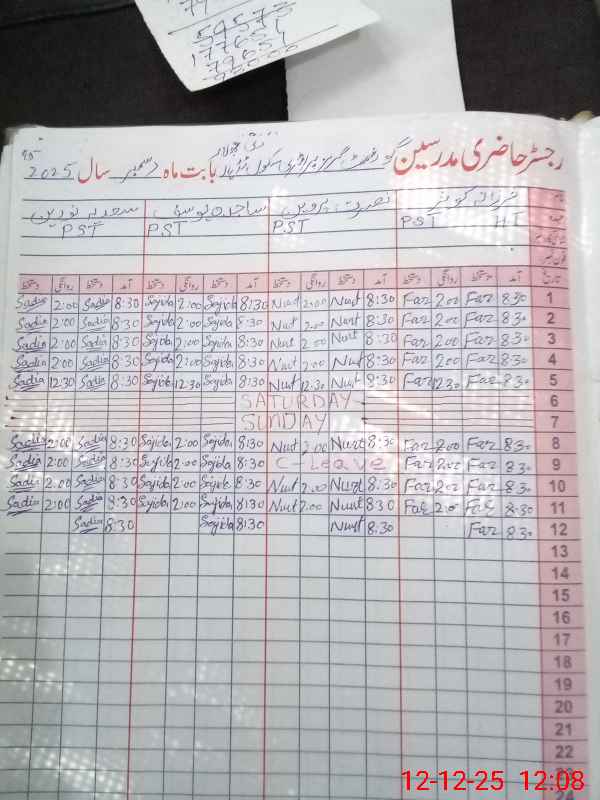 54573
رجسٹر حاضری مدرسین گورنمنٹ گرلز پرائمری سکول بابت ماہ دسمبر سال 2025
نصرت پروین ساجدہ یوسف سعدیہ نورین
H.T PST PST PST PST
تاریخ آمد دستخط روانگی دستخط آمد دستخط روانگی دستخط آمد دستخط روانگی دستخط آمد دستخط روانگی دستخط
Sadia 2:00 Sadia 8:30 Sajida 2:00 Sajida 8:30 Nusrt 2:00 Nusrt 8:30 Far 2:00 Far 8:30 1
Sadia 2:00 Sadia 8:30 Sajida 2:00 Sajida 8:30 Nusrt 2:00 Nusrt 8:30 Far 2:00 Far 8:30 2
Sadia 2:00 Sadia 8:30 Sajida 2:00 Sajida 8:30 Nusrt 2:00 Nusrt 8:30 Far 2:00 Far 8:30 3
Sadia 2:00 Sadia 8:30 Sajida 2:00 Sajida 8:30 Nusrt 2:00 Nusrt 8:30 Far 2:00 Far 8:30 4
Sadia 12:30 Sadia 8:30 Sajida 12:30 Sajida 8:30 Nusrt 12:30 Nusrt 8:30 Far 12:30 Far 8:30 5
SATURDAY 6
SUNDAY 7
Sadia 2:00 Sadia 8:30 Sajida 2:00 Sajida 8:30 Nusrt 2:00 Nusrt 8:30 Far 2:00 Far 8:30 8
Sadia 2:00 Sadia 8:30 Sajida 2:00 Sajida 8:30 C-Leave Far 2:00 Far 8:30 9
Sadia 2:00 Sadia 8:30 Sajida 2:00 Sajida 8:30 Nusrt 2:00 Nusrt 8:30 Far 2:00 Far 8:30 10
Sadia 2:00 Sadia 8:30 Sajida 2:00 Sajida 8:30 Nusrt 2:00 Nusrt 8:30 Far 2:00 Far 8:30 11
Sadia 8:30 Sajida 8:30 Nusrt 8:30 Far 8:30 12
13
14
15
16
17
18
19
20
21
22
23
24
12-12-25 12:08